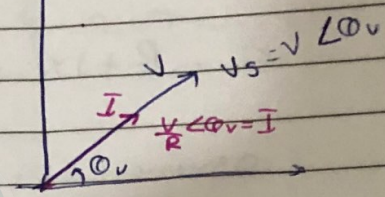 V Vs = V ∠θv
Ī V/R ∠θv = Ī
θv